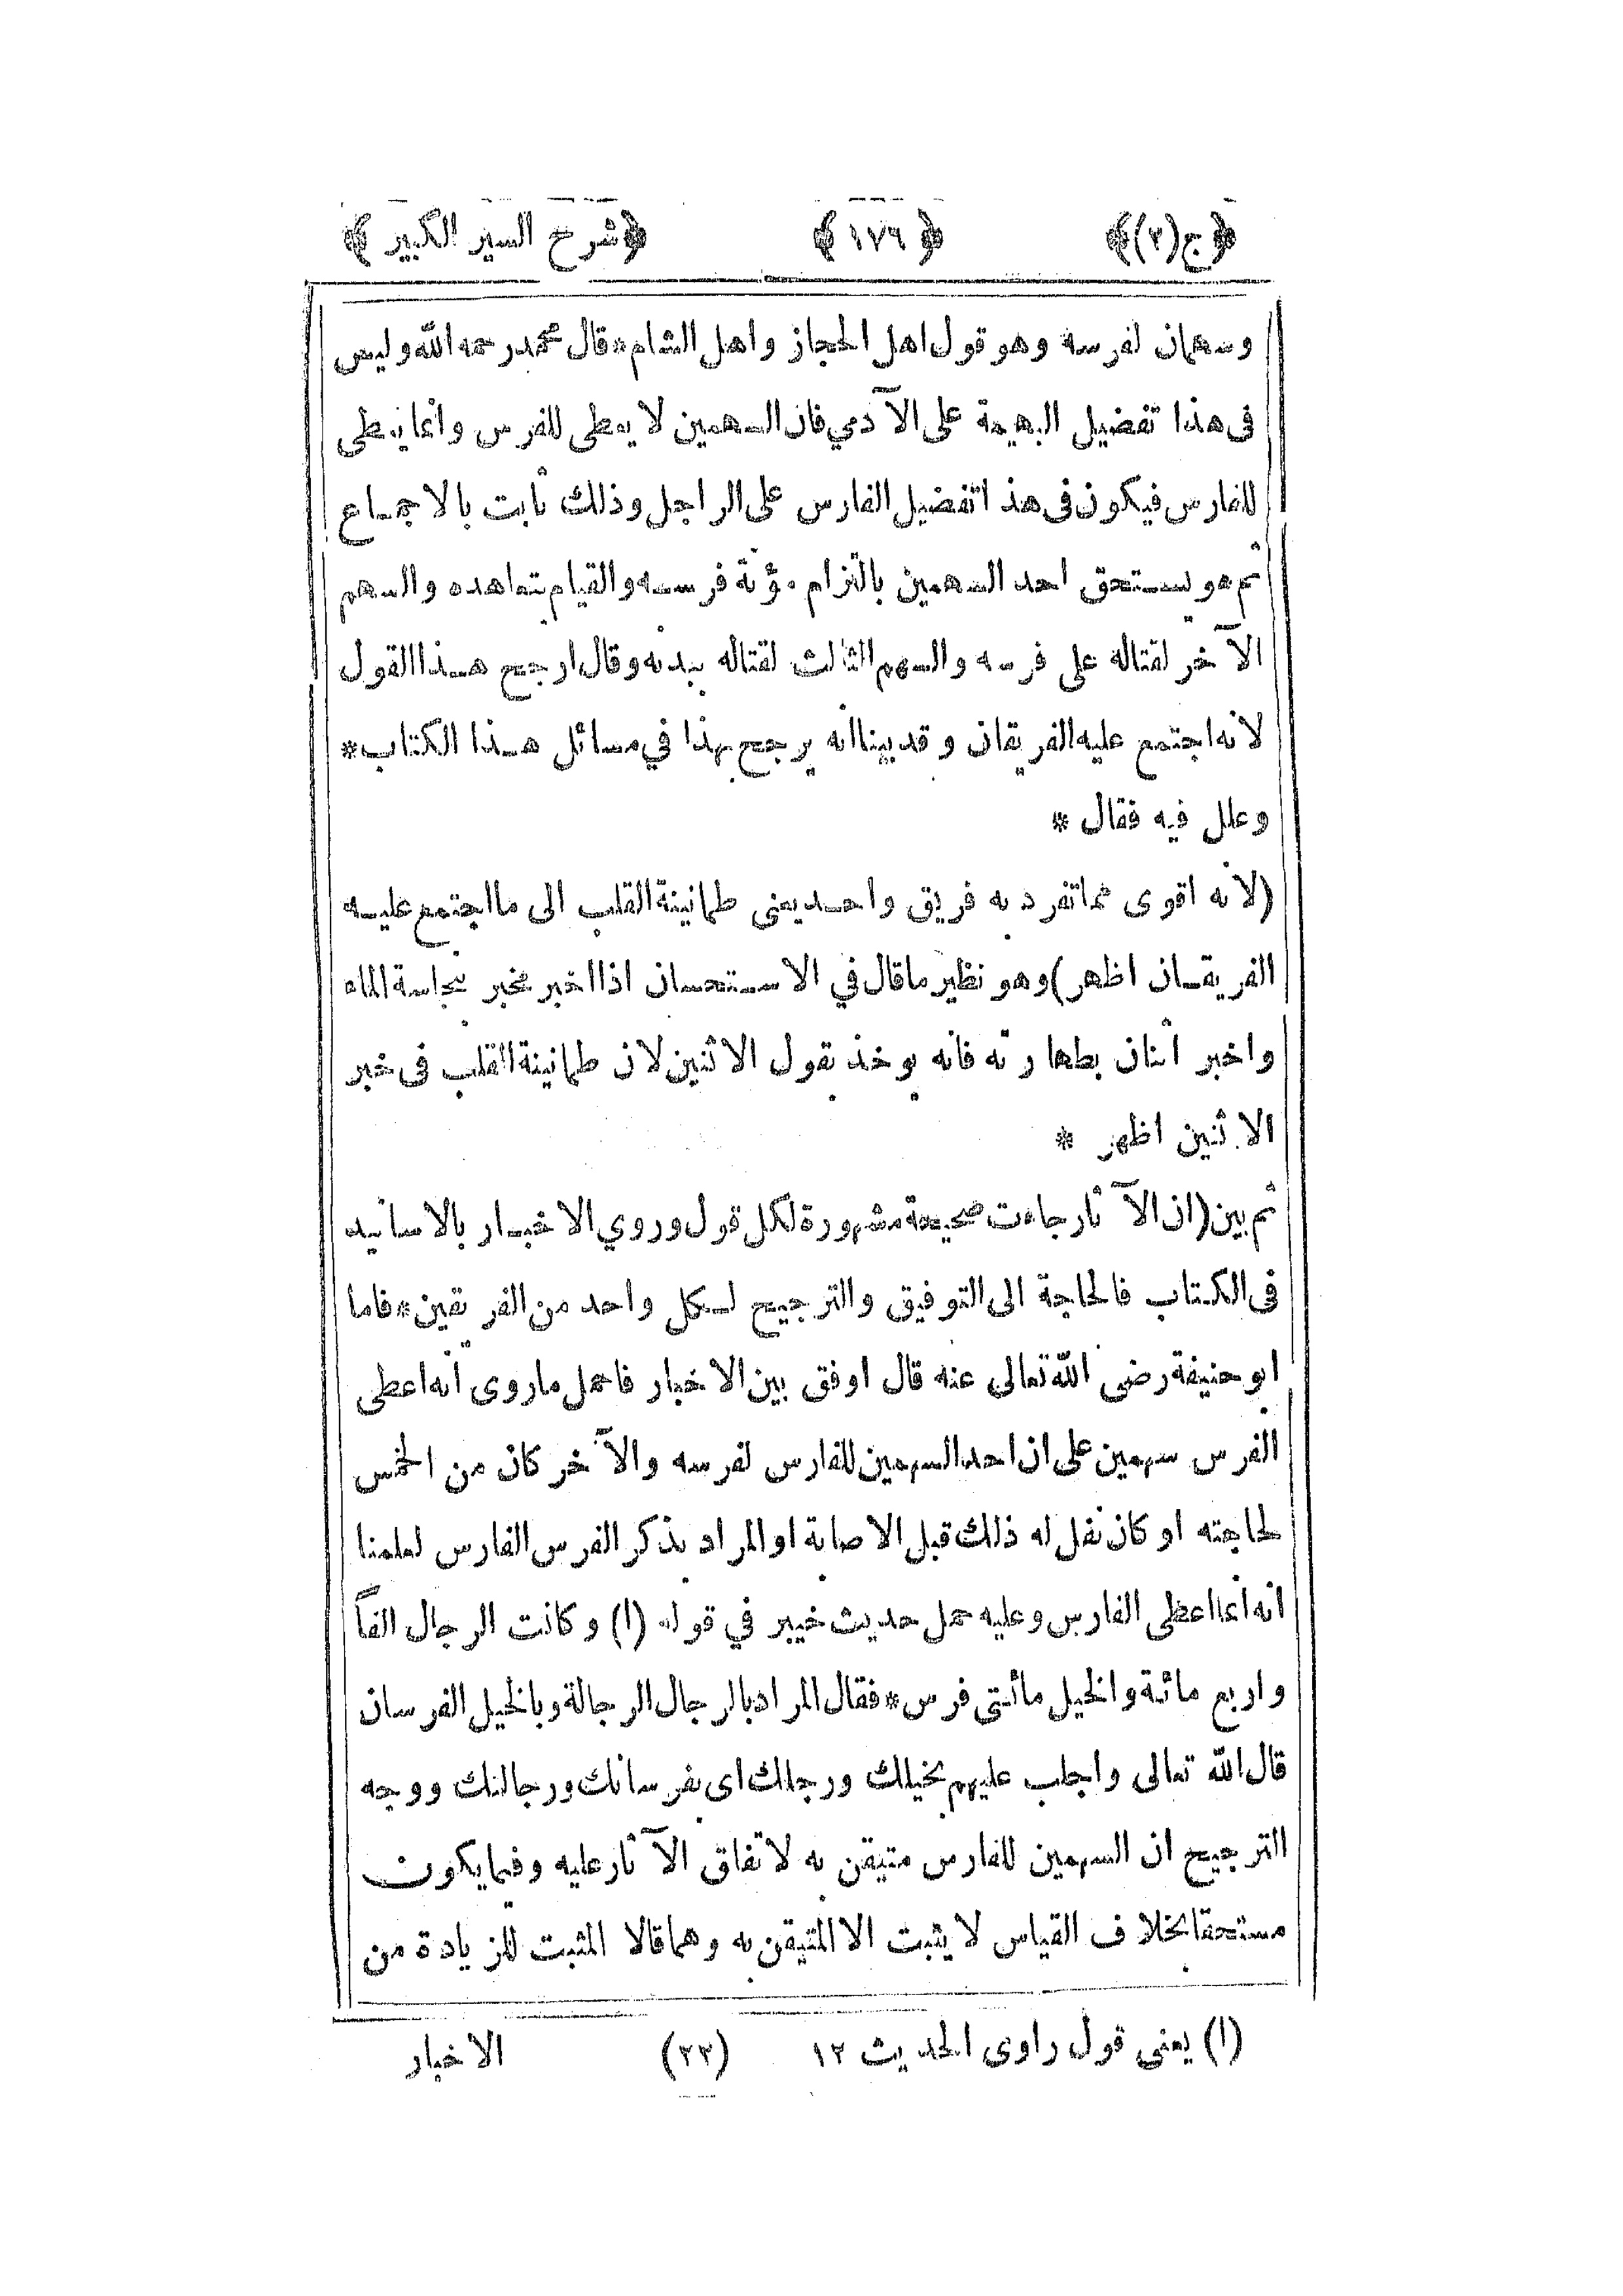 ﴿ج(٢)﴾ ﴿١٧٦﴾ ﴿شرح السير الكبير﴾
وسهمان لفرسه وهو قول اهل الحجاز واهل الشام * قال محمد رحمه الله وليس
فى هذا تفضيل البهيمة على الآدمي فان السهمين لا يعطى للفرس وانما يعطى
للفارس فيكون فى هذا تفضيل الفارس على الراجل وذلك ثابت بالاجماع
ثم هو يستحق احد السهمين بالتزام مؤنة فرسه والقيام بتعاهده والسهم
الآخر لقتاله على فرسه والسهم الثالث لقتاله ببدنه وقال ارجح هذا القول
لانه اجتمع عليه الفريقان وقد بينا انه يرجح بهذا في مسائل هذا الكتاب *
وعلل فيه فقال *
(لانه اقوى مما تفرد به فريق واحد يعنى طمانينة القلب الى ما اجتمع عليه
الفريقان اظهر) وهو نظير ما قال في الاستحسان اذا اخبر مخبر بنجاسة الماء
واخبر اثنان بطهارته فانه يوخذ بقول الاثنين لان طمانينة القلب فى خبر
الاثنين اظهر *
ثم بين (ان الآثار جاءت صحيحة مشهورة لكل قول وروي الاخبار بالاسانيد
فى الكتاب فالحاجة الى التوفيق والترجيح لكل واحد من الفريقين * فاما
ابو حنيفة رضى الله تعالى عنه قال اوفق بين الاخبار فاحمل ما روى انه اعطى
الفرس سهمين على ان احد السهمين للفارس لفرسه والآخر كان من الخمس
لحاجته او كان نفل له ذلك قبل الاصابة او المراد بذكر الفرس الفارس لعلمنا
انه انما اعطى الفارس وعليه حمل حديث خيبر في قوله (١) وكانت الرجال الفاً
واربع مائة والخيل مائتى فرس * فقال المراد بالرجال الرجالة وبالخيل الفرسان
قال الله تعالى واجلب عليهم بخيلك ورجلك اى بفرسانك ورجالتك ووجه
الترجيح ان السهمين للفارس متيقن به لاتفاق الآثار عليه وفيما يكون
مستحقا بخلاف القياس لا يثبت الا المتيقن به وهما قالا المثبت للزيادة من
(١) يعنى قول راوى الحديث ١٢ (٢٢) الاخبار